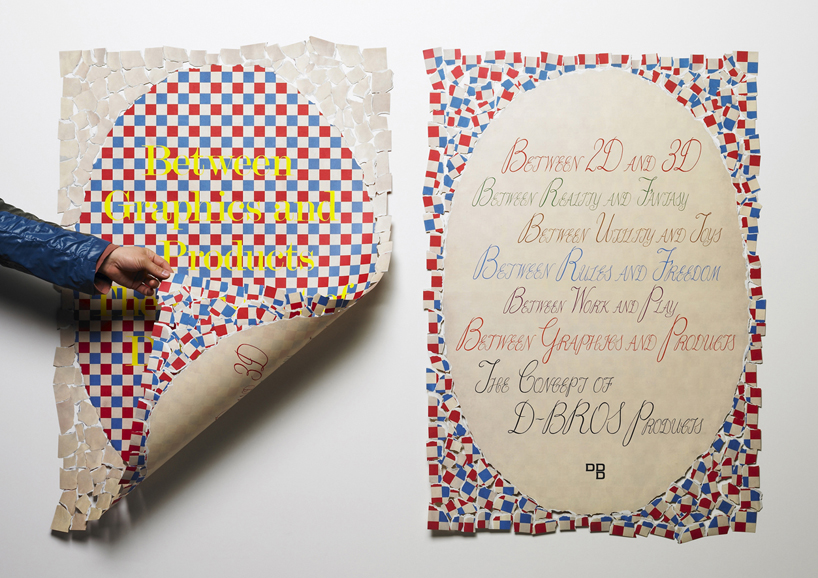 Between
Graphics and
Products
3D
BETWEEN 2D AND 3D
BETWEEN REALITY AND FANTASY
BETWEEN UTILITY AND TOYS
BETWEEN RULES AND FREEDOM
BETWEEN WORK AND PLAY
BETWEEN GRAPHICS AND PRODUCTS
THE CONCEPT OF
D-BROS PRODUCTS